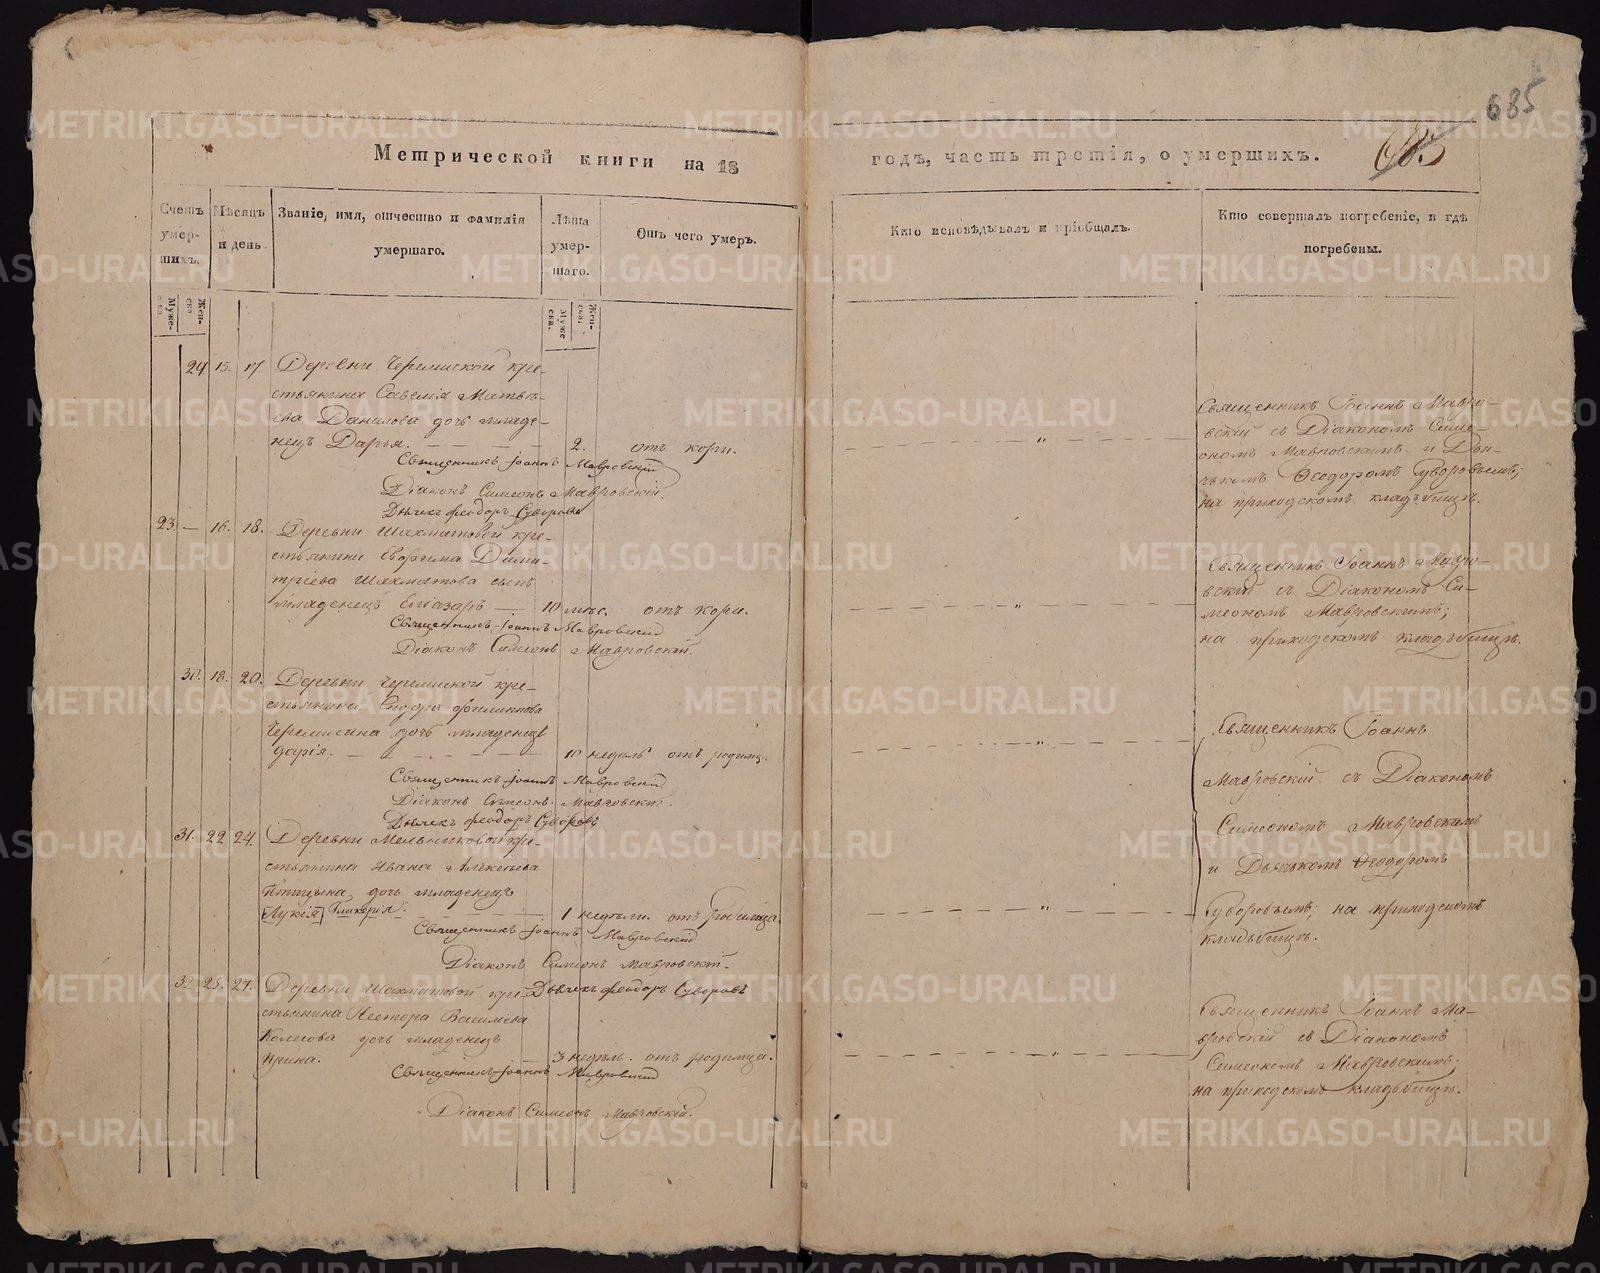 685
685
Метрической книги на 18
годъ, часть третія, о умершихъ.
Счетъ умер-шихъ.
Мѣсяцъ и день.
Званіе, имя, отчество и фамилія умершаго.
Лѣта умер-шаго.
Отъ чего умеръ.
Кто исповѣдывалъ и пріобщалъ.
Кто совершалъ погребеніе, и гдѣ погребены.
Муже-ска.
Жен-ска
Муже ска.
Жен-ска.
29. 15. 17 Деревни Черемиской кре-
стьянина Савелія Матвѣ-
ева Данилова дочь младе-
нецъ Дарья. 2. отъ кори.
Священникъ Іоаннъ Мавровскій
Діаконъ Симеонъ Мавровскій.
Дьячекъ Феодоръ Суворовъ
Священникъ Іоаннъ Мавро-
вскій съ Діакономъ Симе-
ономъ Мавровскимъ и Дья-
чкомъ Ѳеодоромъ Суворовымъ;
на приходскомъ кладбищѣ.
23. — 16. 18. Деревни Шахматовой кре-
стьянина Дими-
тріева Шахматова сынъ
младенецъ Еліазаръ — 10 мѣс. отъ кори.
Священникъ Іоаннъ Мавровскій
Діаконъ Симеонъ Мавровскій.
Священникъ Іоаннъ Мавро-
вскій съ Діакономъ Си-
меономъ Мавровскимъ;
на приходскомъ кладбищѣ.
30. 18. 20. Деревни Черемиской кре-
стьянина Филиппова
Черемисина дочь младенецъ
Дарія. 10 недѣль отъ родимц.
Священникъ Іоаннъ Мавровскій
Діаконъ Симеонъ Мавровскій.
Дьячекъ Феодоръ Суворовъ
31. 22 24. Деревни Мельниковой кре-
стьянина Ивана Алексѣева
Птицына дочь младенецъ
[Лукія] Гликерія. 1 недѣли. отъ родимца.
Священникъ Іоаннъ Мавровскій
Діаконъ Симеонъ Мавровскій.
Дьячекъ Феодоръ Суворовъ
Священникъ Іоаннъ
Мавровскій съ Діакономъ
Симеономъ Мавровскимъ
и Дьячкомъ Ѳеодоромъ
Суворовымъ; на приходскомъ
кладбищѣ.
32. 25. 27. Деревни Шахматовой кре-
стьянина Нестора Васильева
Колесова дочь младенецъ
Ирина. — 3 недѣль. отъ родимца.
Священникъ Іоаннъ Мавровскій
Діаконъ Симеонъ Мавровскій.
Священникъ Іоаннъ Ма-
вровскій съ Діакономъ
Симеономъ Мавровскимъ;
на приходскомъ кладбищѣ.
METRIKI.GASO-URAL.RU